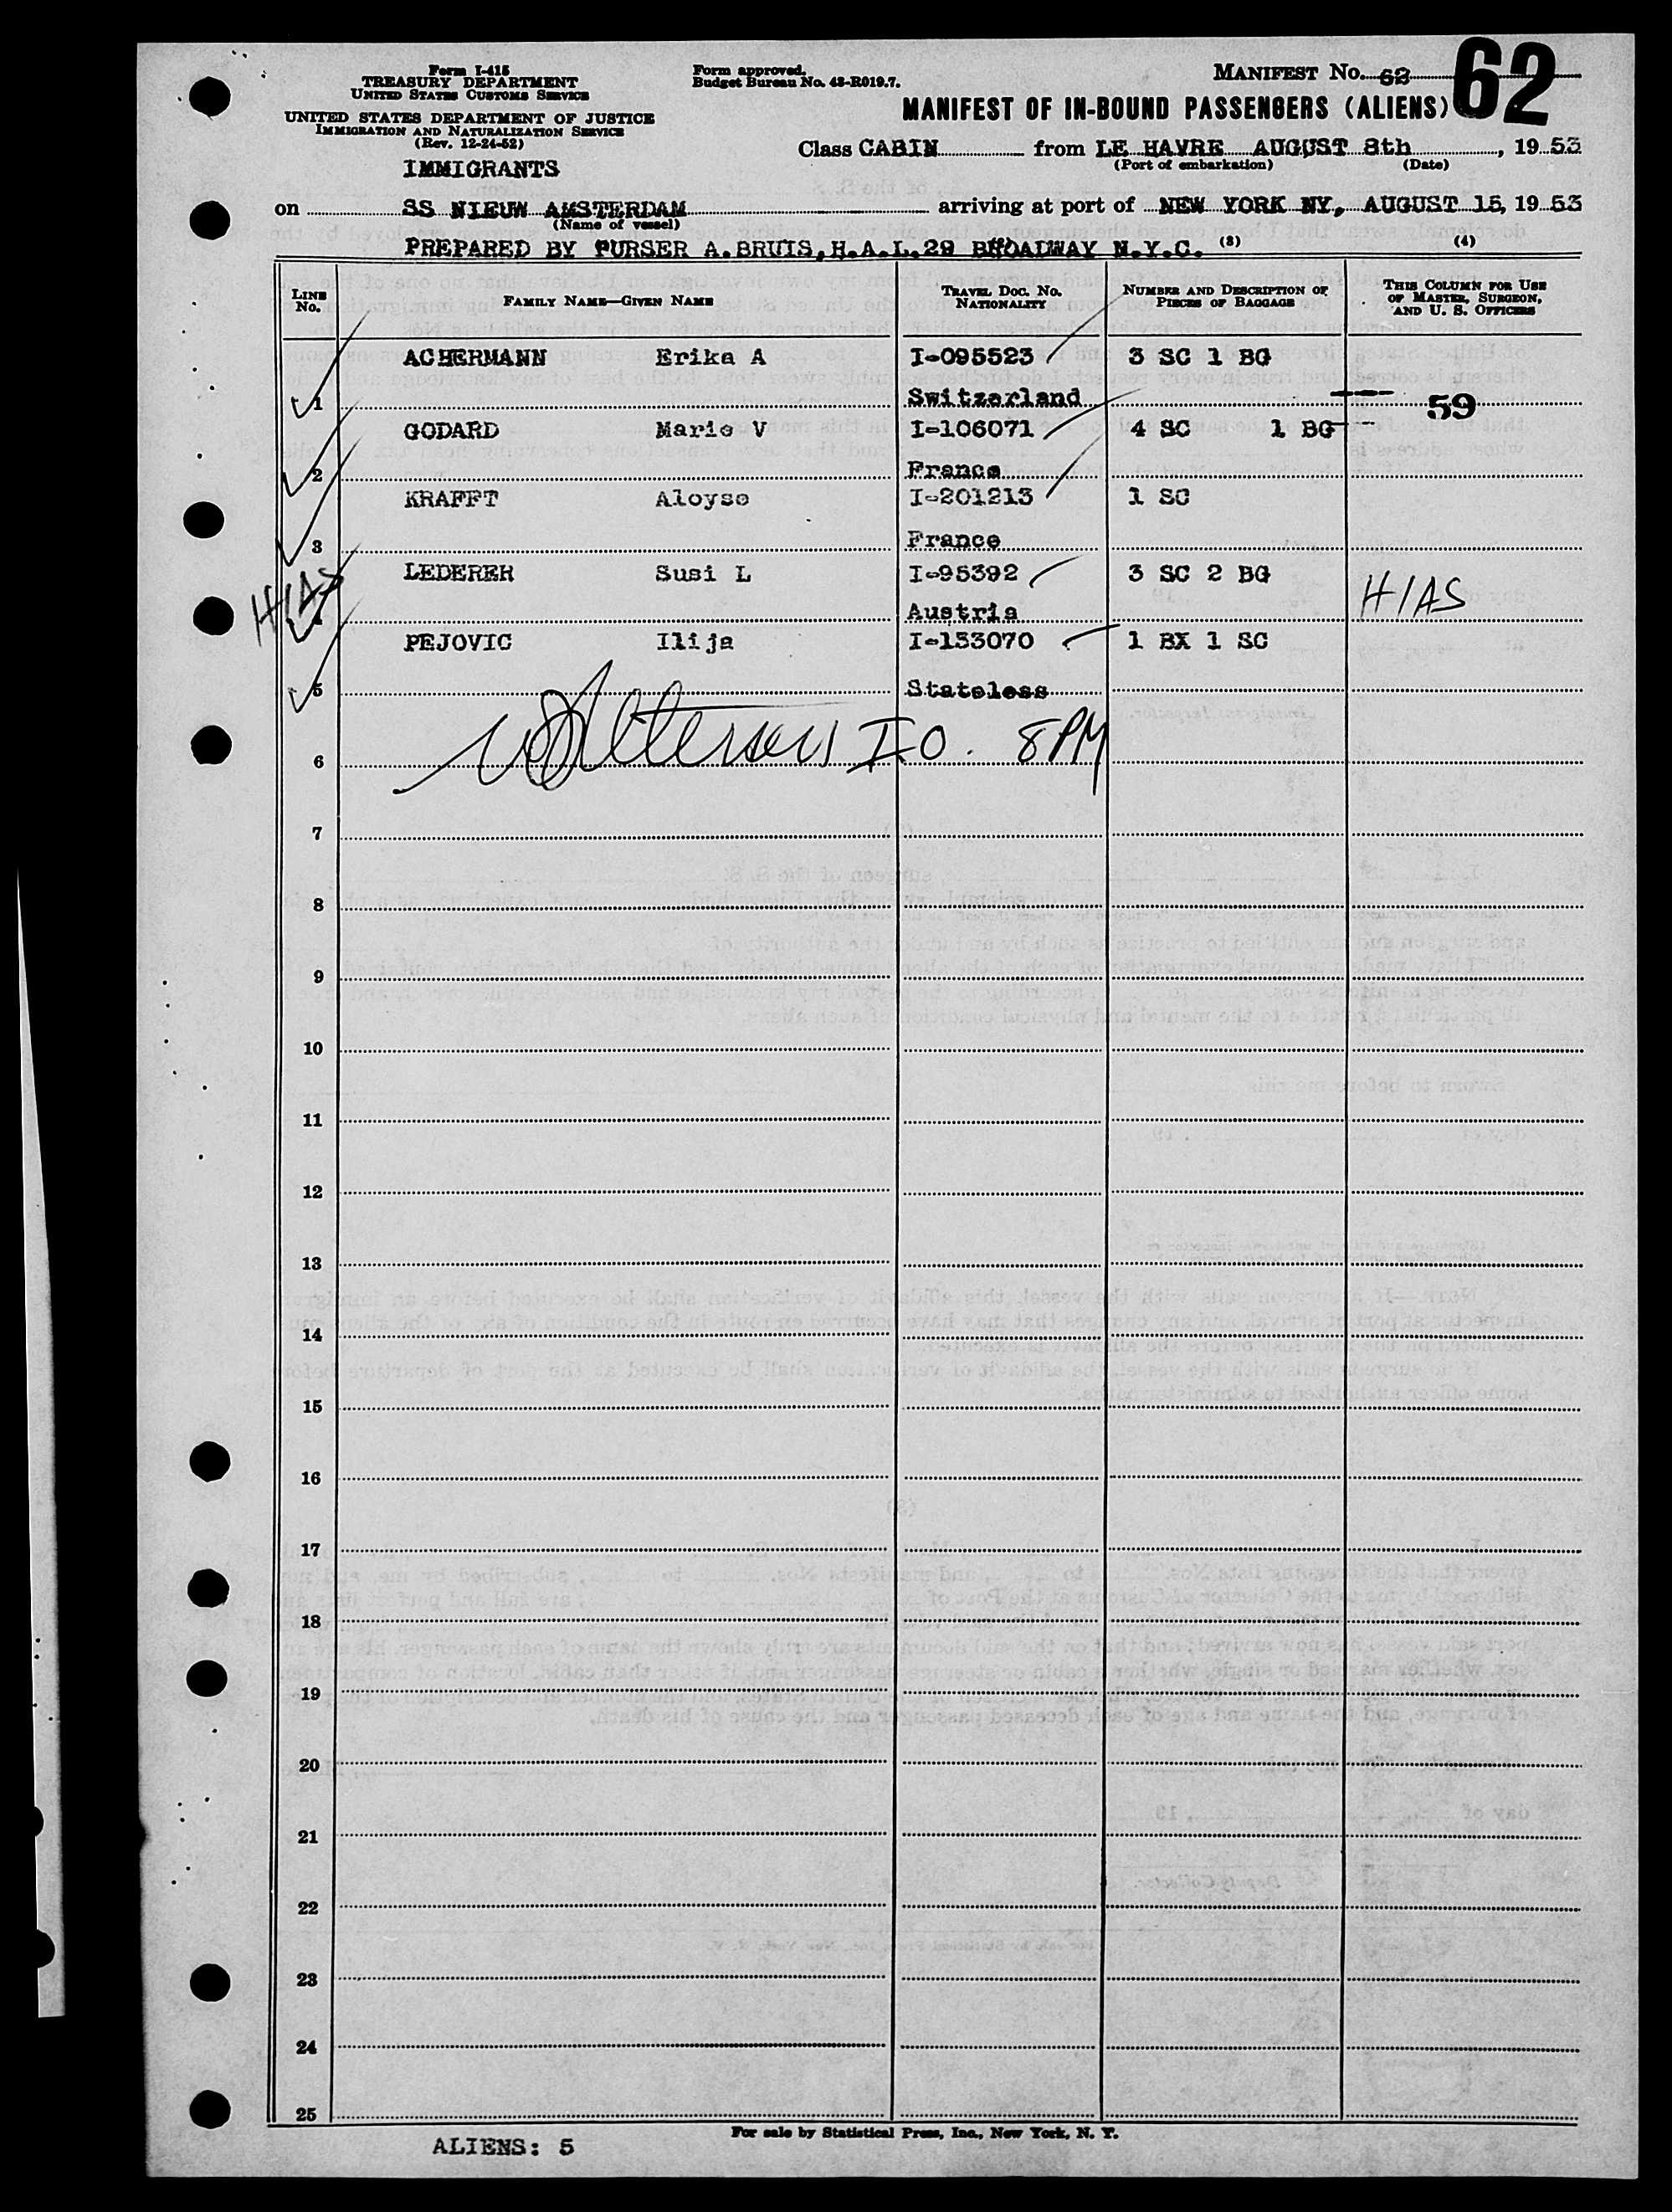 Form I-415
TREASURY DEPARTMENT
UNITED STATES CUSTOMS SERVICE
UNITED STATES DEPARTMENT OF JUSTICE
IMMIGRATION AND NATURALIZATION SERVICE
(Rev. 12-24-52)
IMMIGRANTS
Form approved.
Budget Bureau No. 43-R019.7.
MANIFEST No. 62
62
MANIFEST OF IN-BOUND PASSENGERS (ALIENS)
Class CABIN from LE HAVRE AUGUST 8th, 19 53
(Port of embarkation) (Date)
on SS NIEUW AMSTERDAM arriving at port of NEW YORK NY, AUGUST 15, 19 53
(Name of vessel)
PREPARED BY PURSER A.BRUIS,H.A.L.29 BROADWAY N.Y.C. (3) (4)
LINE No. FAMILY NAME—GIVEN NAME TRAVEL DOC. NO. NATIONALITY NUMBER AND DESCRIPTION OF PIECES OF BAGGAGE THIS COLUMN FOR USE OF MASTER, SURGEON, AND U. S. OFFICERS
ACHERMANN Erika A I-095523 3 SC 1 BG
1 Switzerland 59
GODARD Marie V I-106071 4 SC 1 BG
2 France
KRAFFT Aloyse I-201213 1 SC
3 France
HIAS LEDERER Susi L I-95392 3 SC 2 BG HIAS
4 Austria
PEJOVIC Ilija I-153070 1 BX 1 SC
5 Stateless
6 I O. 8 PM
7
8
9
10
11
12
13
14
15
16
17
18
19
20
21
22
23
24
25
For sale by Statistical Press, Inc., New York, N. Y.
ALIENS: 5